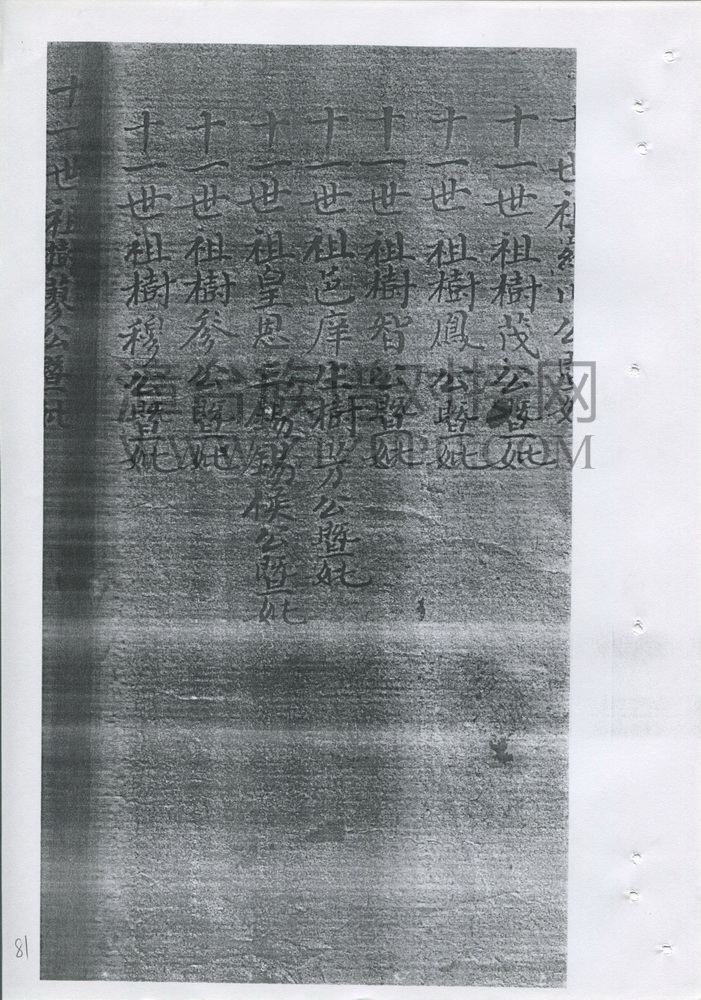 世祖公暨妣
十一世祖樹茂公暨妣
十一世祖樹鳳公暨妣
十一世祖樹智公暨妣
十一世祖邑庠生樹芳公暨妣
十一世祖皇恩三錫錫侯公暨妣
十一世祖樹參公暨妣
十一世祖樹穆公暨妣
十一世祖樹蓼公暨妣
81